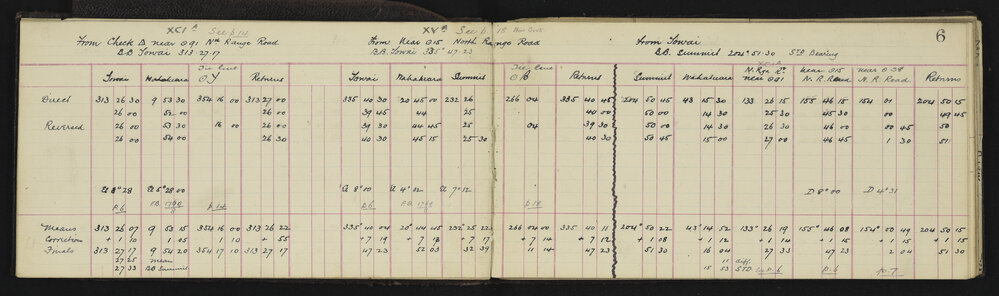 XCI A See p 14
XV A See p 15
6
From Check D near O91 Nth Range Road
From Near O15 North Range Road
From Towai
BB Towai 313 27 17
BB Towai 335° 47 23
BB Summit 204° 51 30 STD Bearing
Towai Waharara Tie line OY Returns Towai Waharara Summit Tie line OB Returns Summit Waharara N. Rge Rd near O91 near O15 N. R. Road near O38 N. R. Road Returns
Direct 313 26 30 9 53 30 354 16 00 313 27 00 335 40 30 20 45 00 232 26 266 04 00 335 40 45 204 50 45 43 15 30 133 26 15 155 46 15 154 01 204 50 15
26 00 52 00 26 00 39 45 44 25 40 00 50 00 14 30 25 30 45 30 00 49 45
Reversed 26 00 53 30 16 00 26 00 39 30 44 45 25 04 39 30 50 00 14 30 26 30 46 00 00 45 50
26 00 54 00 26 30 40 30 45 15 25 30 40 30 50 45 15 00 27 00 46 45 1 30 51
8° 28 5° 28 00 8° 00 4° 02 7° 12 D 8° 00 D 4° 31
p.6 p.14 p.6 p.18
Means 313 26 07 9 53 15 354 16 00 313 26 22 335° 40 04 20° 44 45 232° 25 22 266 04 00 335 40 11 204° 50 22 43° 14 52 133° 26 19 155° 46 08 154° 00 49 204 50 15
Correction + 1 10 1 05 1 10 + 55 + 7 19 + 7 18 + 7 17 + 7 14 + 7 12 + 1 08 + 1 12 + 1 14 + 1 15 + 1 15 + 1 15
Finals 313 27 17 9 54 20 354 17 10 313 27 17 47 23 52 03 32 39 11 14 47 23 51 30 16 04 27 33 47 23 2 04 51 30
27 25 mean 11 diff.
27 33 BB Summit 15 53 STD. p.6 p.6 p.7